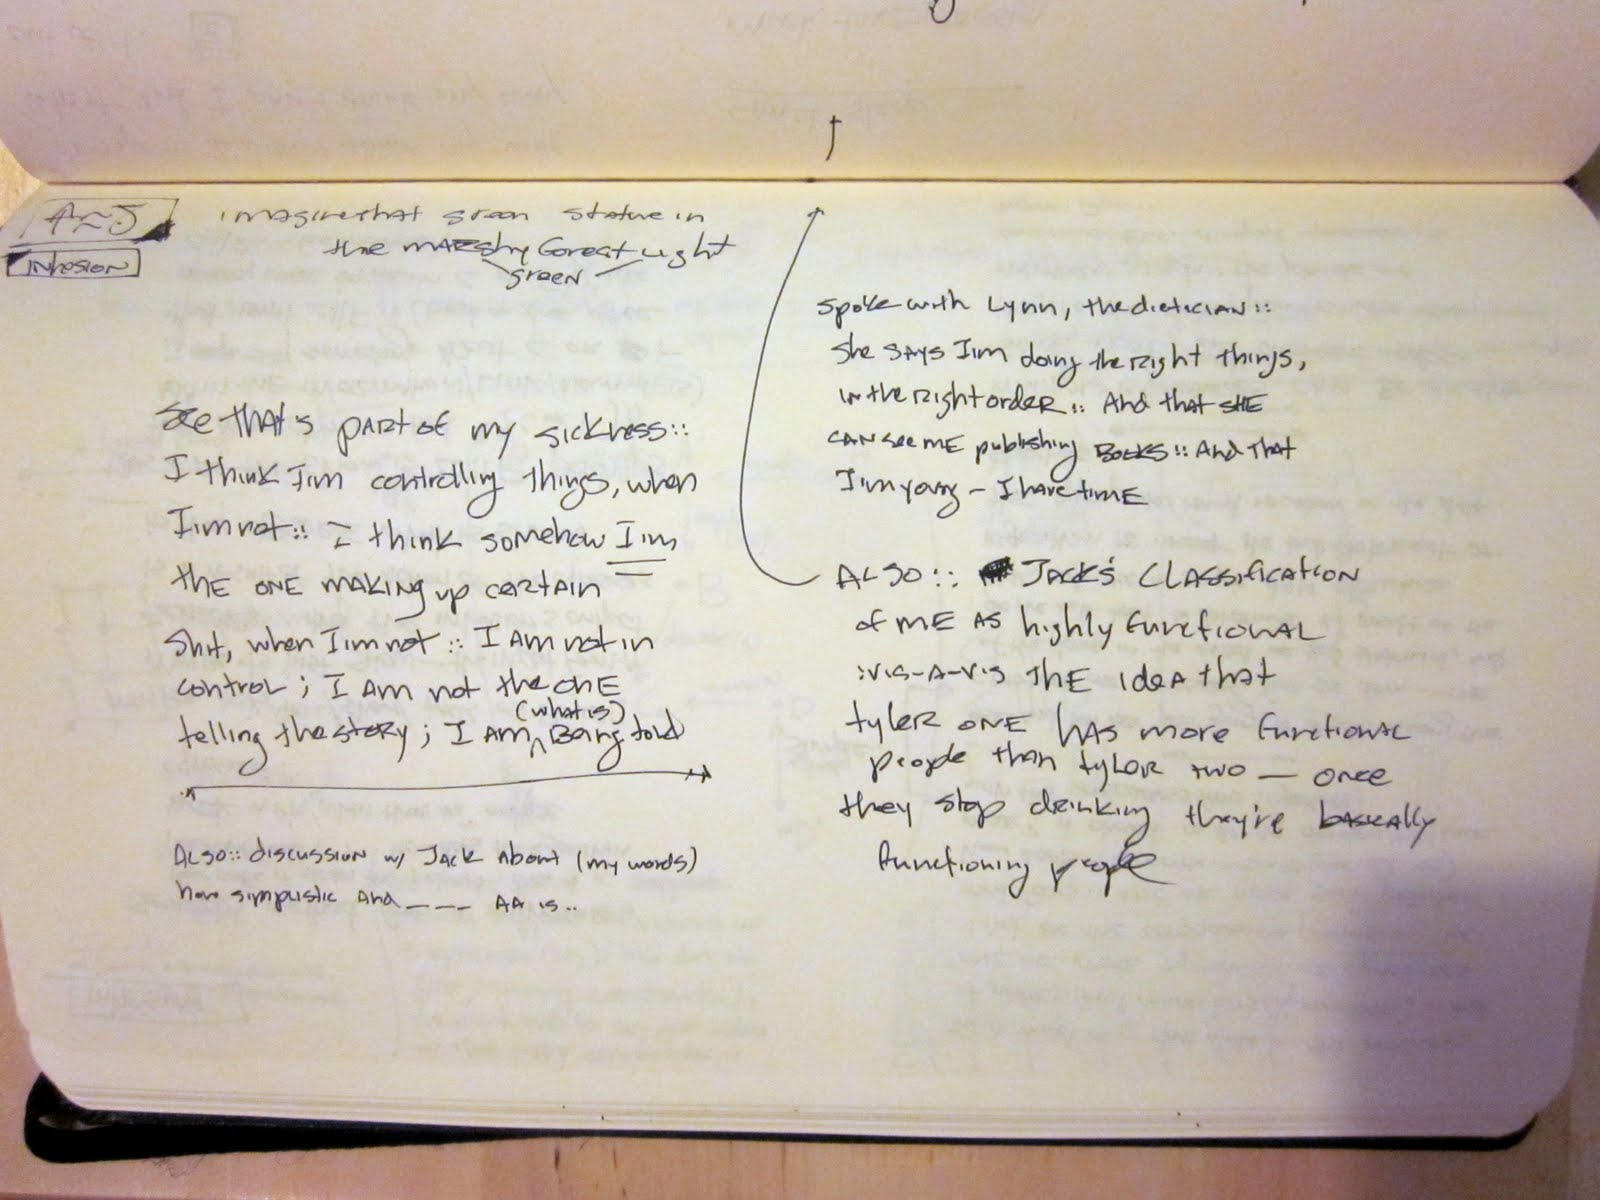 INFUSION
imagine that green statue in
the marshy forest light
green
See that's part of my sickness::
I think I'm controlling things, when
I'm not:: I think somehow I'm
the one making up certain
shit, when I'm not :: I am not in
control; I am not the one
telling the story; I am (what is) being told
Also:: discussion w/ Jack about (my words)
how simplistic and ___ AA is..
Spoke with Lynn, the dietician::
She says I'm doing the right things,
in the right order:: And that she
can see me publishing books:: And that
I'm young – I have time
Also:: Jack's classification
of me as highly functional
:vis-a-vis the idea that
tyler one has more functional
people than tyler two — once
they stop drinking they're basically
functioning people